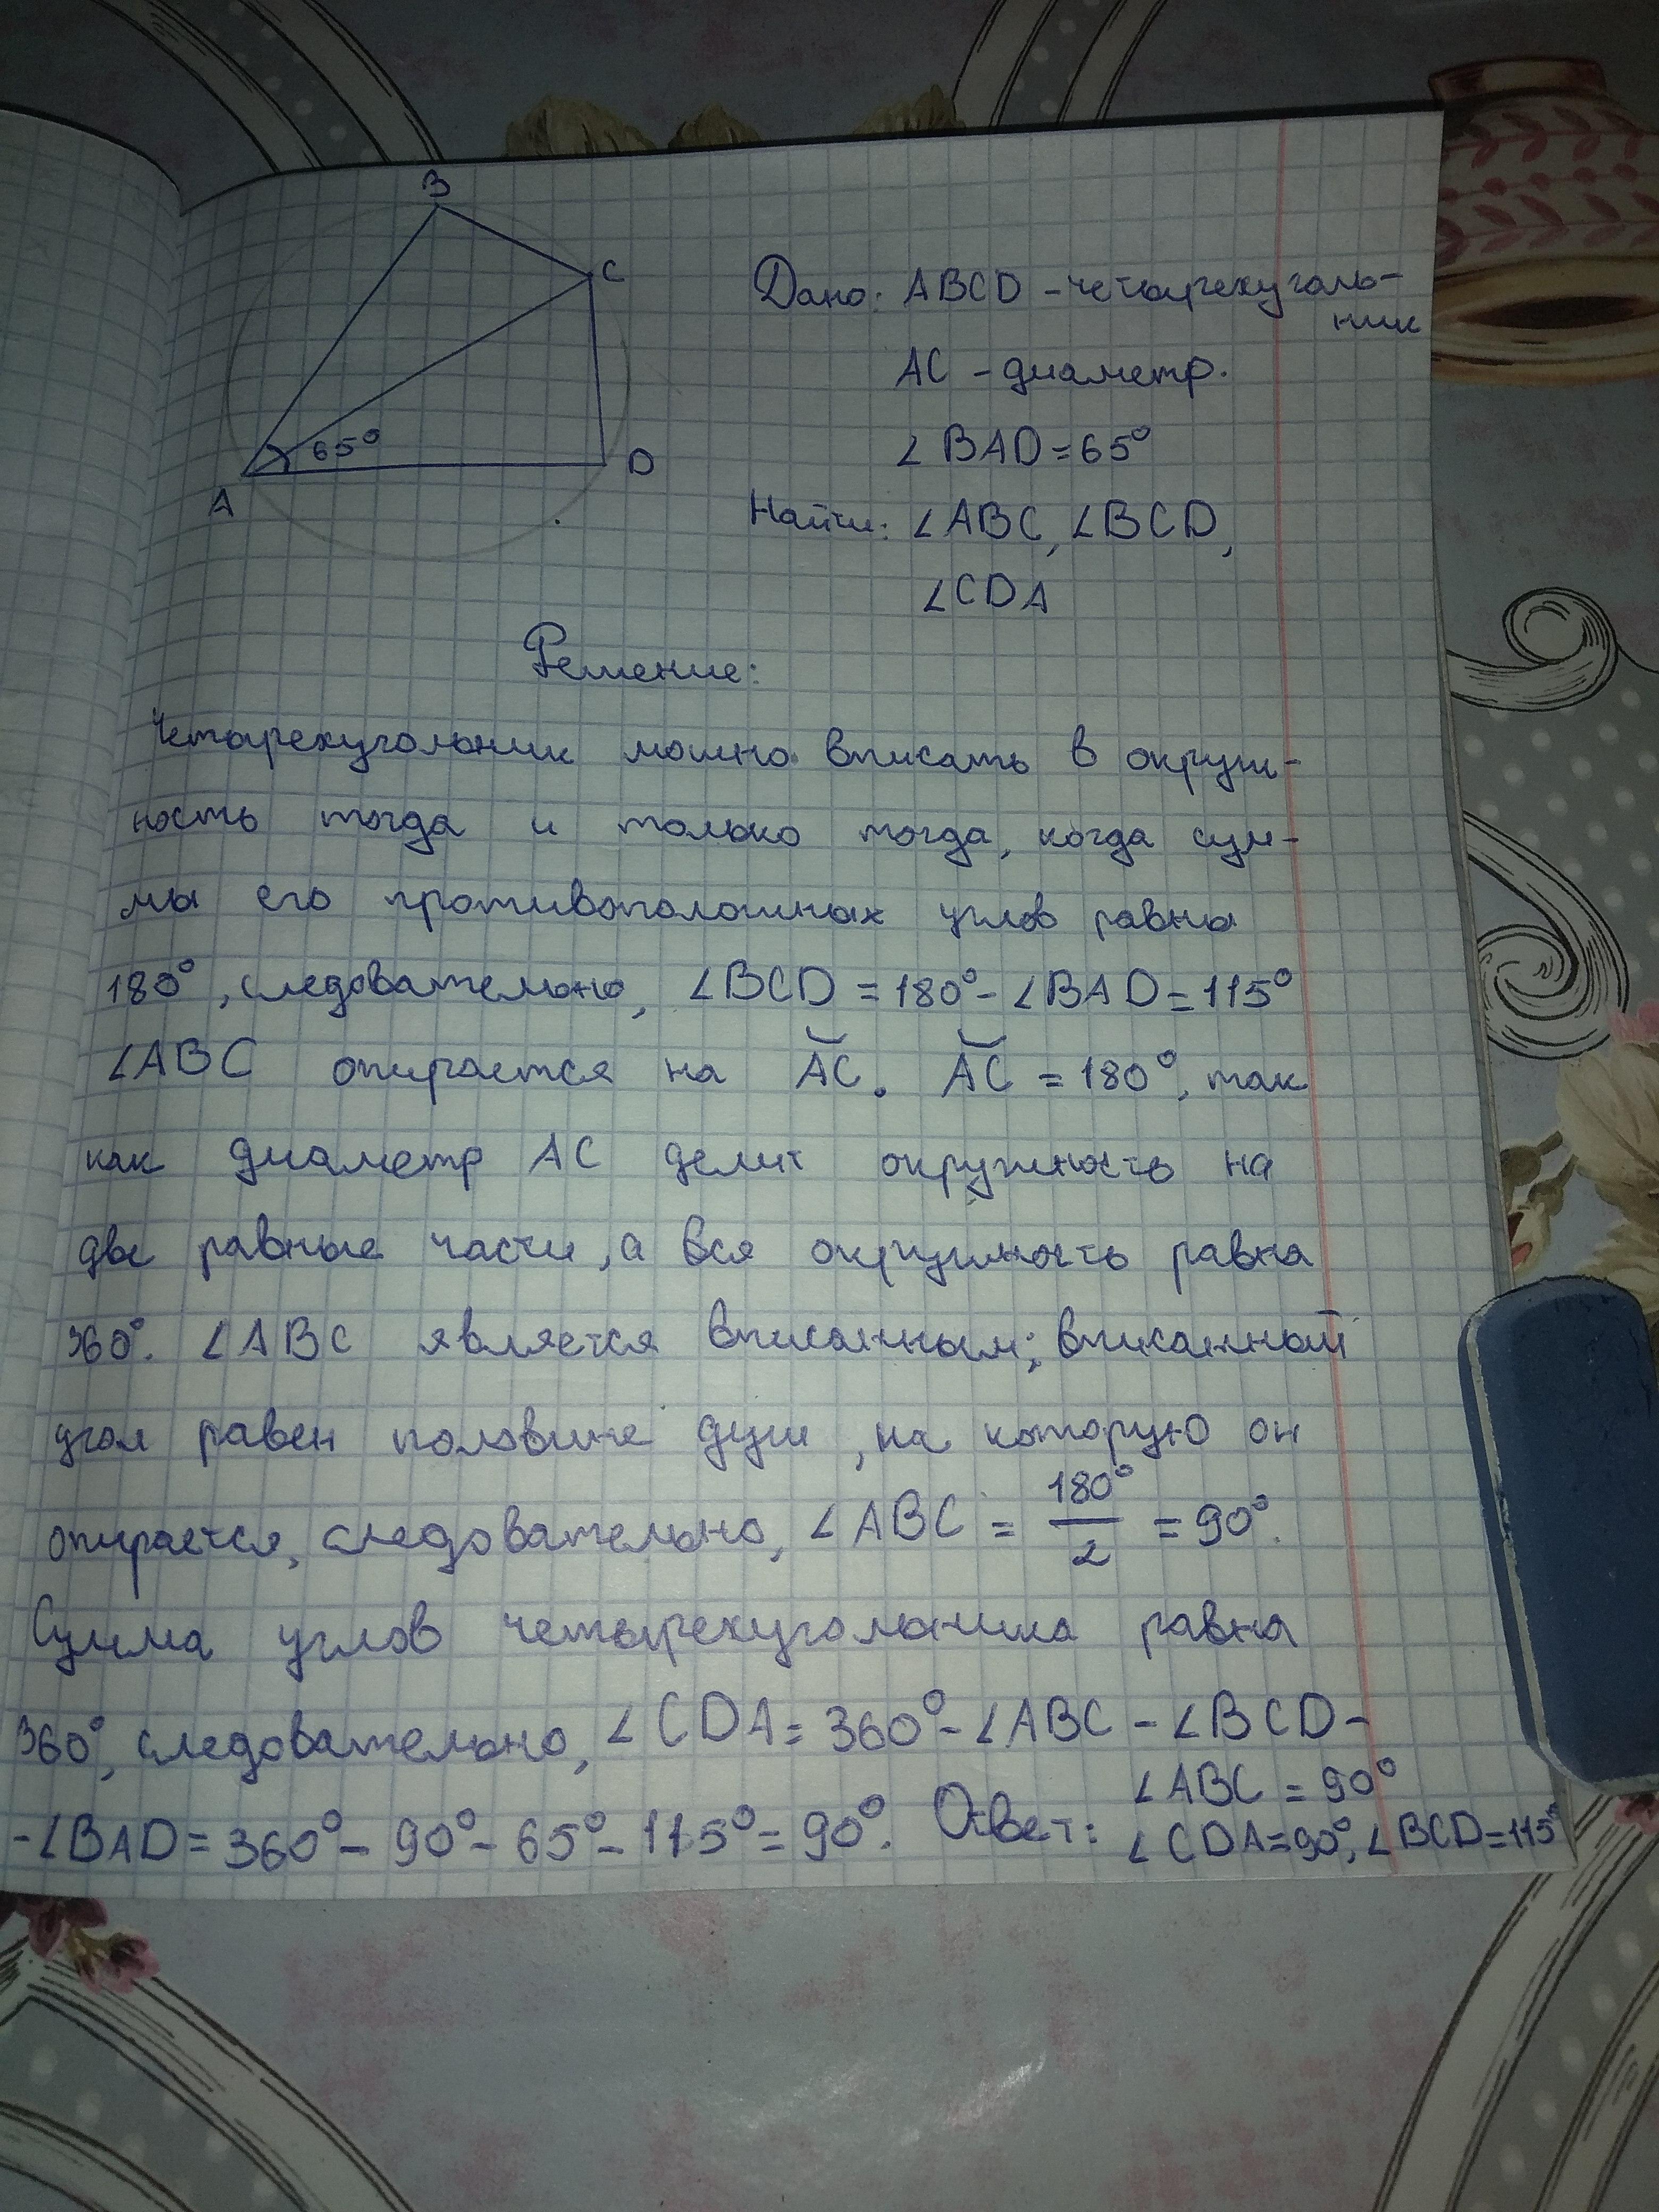 B
C
65°
D
A
Дано: ABCD - четырехуголь-
ник
AC - диаметр.
∠BAD = 65°
Найти: ∠ABC, ∠BCD,
∠CDA
Решение:
Четырехугольник можно вписать в окруж-
ность тогда и только тогда, когда сум-
мы его противоположных углов равны
180°, следовательно, ∠BCD = 180° - ∠BAD = 115°
∠ABC опирается на ◡AC. ◡AC = 180°, так
как диаметр AC делит окружность на
две равные части, а вся окружность равна
360°. ∠ABC является вписанным; вписанный
угол равен половине дуги, на которую он
опирается, следовательно, ∠ABC = 180°/2 = 90°.
Сумма углов четырехугольника равна
360°, следовательно, ∠CDA = 360° - ∠ABC - ∠BCD -
- ∠BAD = 360° - 90° - 65° - 115° = 90°. Ответ: ∠ABC = 90°
∠CDA = 90°, ∠BCD = 115°